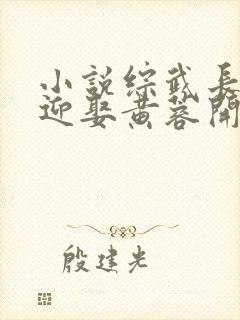 小说综武長
迎娶黄蓉開
殷建光